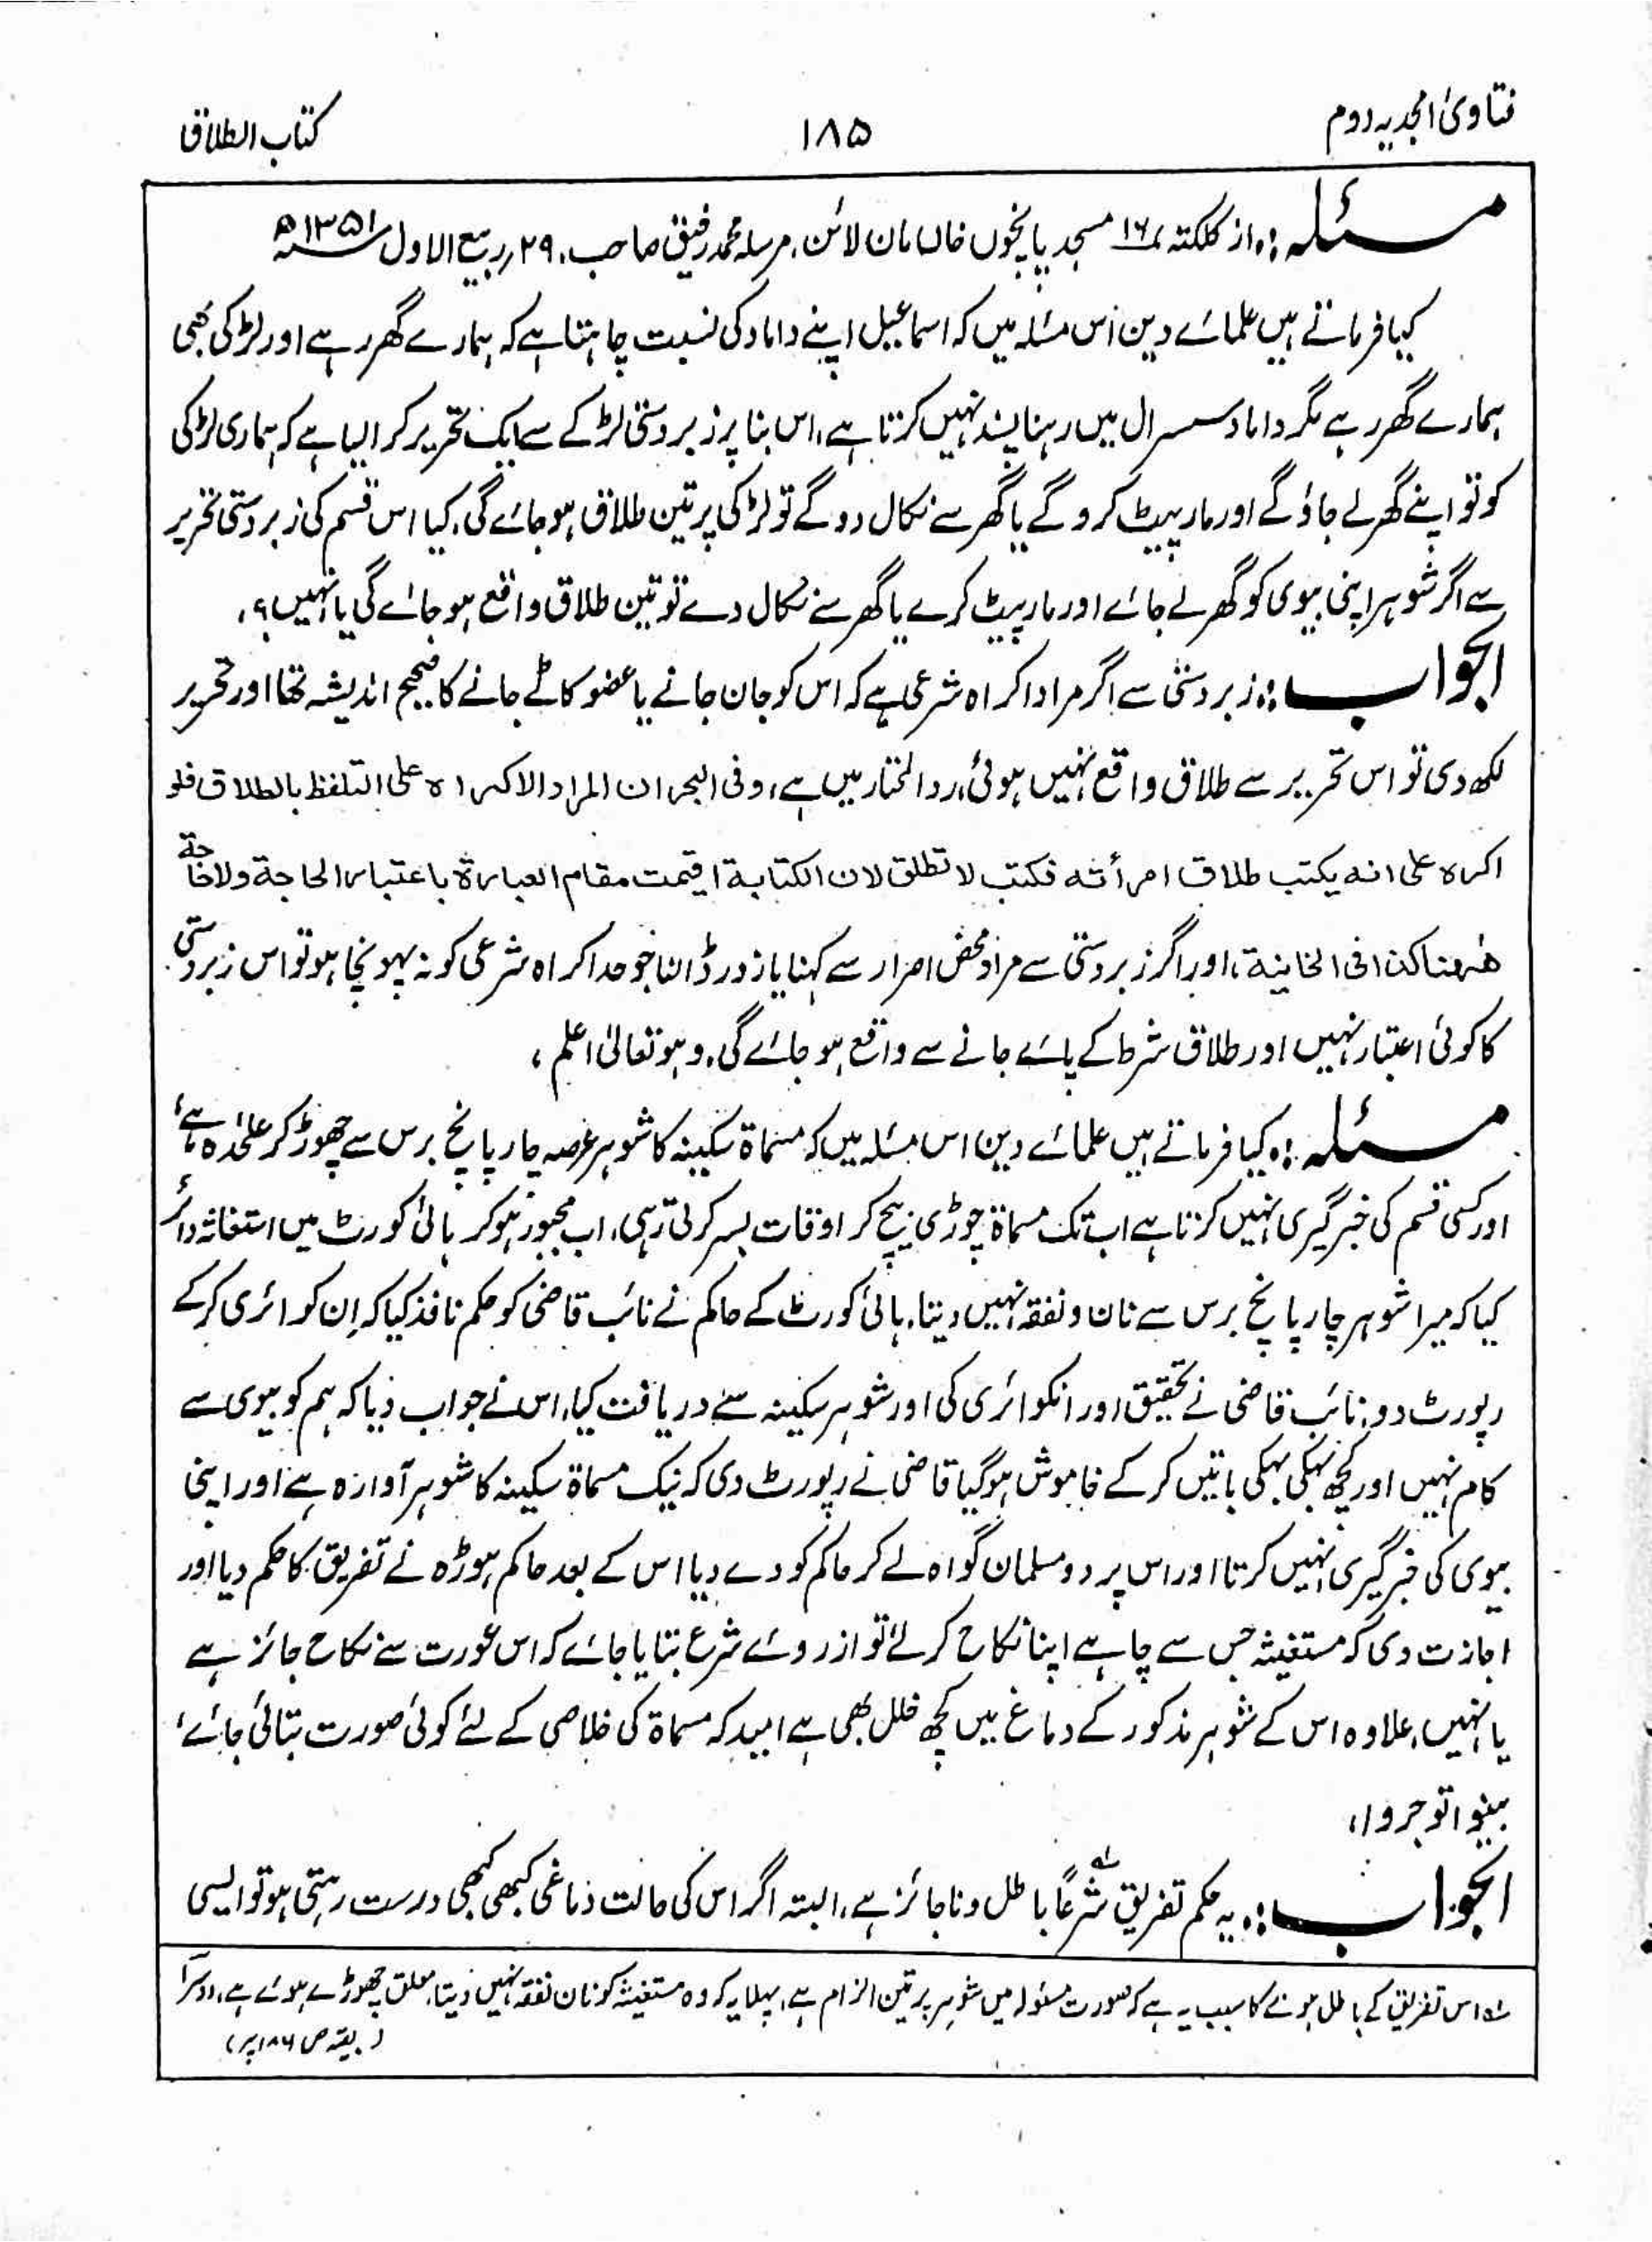 فتاویٰ امجدیہ دوم
۱۸۵
کتاب الطلاق
مسئلہ:۔ از کلکتہ ۱۶ مسجد پانچوں خانساماں لائن، مرسلہ محمد رفیق صاحب، ۲۹؍ ربیع الاول ۱۳۵۱ھ
کیا فرماتے ہیں علمائے دین اس مسئلہ میں کہ اسماعیل اپنے داماد کی نسبت چاہتا ہے کہ ہمارے گھر رہے اور لڑکی بھی
ہمارے گھر رہے مگر داماد سسرال میں رہنا پسند نہیں کرتا ہے، اس بنا پر زبردستی لڑکے سے ایک تحریر کرا لیا ہے کہ ہماری لڑکی
کو تو اپنے گھر لے جاؤ گے اور مار پیٹ کرو گے یا گھر سے نکال دو گے تو لڑکی پر تین طلاق ہو جائے گی، کیا اس قسم کی زبردستی تحریر
سے اگر شوہر اپنی بیوی کو گھر لے جائے اور مار پیٹ کرے یا گھر سے نکال دے تو تین طلاق واقع ہو جائے گی یا نہیں؟،
الجواب:۔ زبردستی سے اگر مراد اکراہ شرعی ہے کہ اس کو جان جانے یا عضو کاٹے جانے کا صحیح اندیشہ تھا اور تحریر
لکھ دی تو اس تحریر سے طلاق واقع نہیں ہوئی، رد المختار میں ہے، وفی البحر ان المراد الاکراہ علی التلفظ بالطلاق فلو
اکرہ علی انہ یکتب طلاق امرأتہ فکتب لا تطلق لان الکتابۃ اقیمت مقام العبارۃ باعتبار الحاجۃ ولا حاجۃ
ھٰھنا کذا فی الخانیۃ، اور اگر زبردستی سے مراد محض اصرار سے کہنا یا زور ڈالنا جو حد اکراہ شرعی کو نہ پہونچا ہو تو اس زبردستی
کا کوئی اعتبار نہیں اور طلاق شرط کے پائے جانے سے واقع ہو جائے گی، وہو تعالیٰ اعلم،
مسئلہ:۔ کیا فرماتے ہیں علمائے دین اس مسئلہ میں کہ مسماۃ سکینہ کا شوہر عرصہ چار پانچ برس سے چھوڑ کر علٰحدہ ہے،
اور کسی قسم کی خبر گیری نہیں کرتا ہے اب تک مسماۃ چوڑی بیچ کر اوقات بسر کرتی رہی، اب مجبور ہو کر ہائی کورٹ میں استغاثہ دائر
کیا کہ میرا شوہر چار پانچ برس سے نان و نفقہ نہیں دیتا، ہائی کورٹ کے حاکم نے نائب قاضی کو حکم نافذ کیا کہ ان کوائری کر کے
رپورٹ دو، نائب قاضی نے تحقیق اور انکوائری کی اور شوہر سکینہ سے دریافت کیا، اس نے جواب دیا کہ ہم کو بیوی سے
کام نہیں اور کچھ بہکی بہکی باتیں کر کے خاموش ہو گیا قاضی نے رپورٹ دی کہ نیک مسماۃ سکینہ کا شوہر آوارہ ہے اور اپنی
بیوی کی خبر گیری نہیں کرتا اور اس پر دو مسلمان گواہ لے کر حاکم کو دے دیا اس کے بعد حاکم ہوڑہ نے تفریق کا حکم دیا اور
اجازت دی کہ مستغیثہ جس سے چاہے اپنا نکاح کر لے تو از روئے شرع بتایا جائے کہ اس عورت سے نکاح جائز ہے
یا نہیں، علاوہ اس کے شوہر مذکور کے دماغ میں کچھ خلل بھی ہے امید کہ مسماۃ کی خلاصی کے لئے کوئی صورت بتائی جائے،
بینوا توجروا،
الجواب:۔ یہ حکم تفریق لہ شرعاً باطل و ناجائز ہے، البتہ اگر اس کی حالت دماغی کبھی کبھی درست رہتی ہو تو ایسی
لہ اس تفریق کے باطل ہونے کا سبب یہ ہے کہ صورت مسئولہ میں شوہر پر تین الزام ہے، پہلا یہ کہ وہ مستغیثہ کو نان نفقہ نہیں دیتا، معلق چھوڑے ہوئے ہے، دوسرا
(بقیہ ص ۱۸۶ پر)